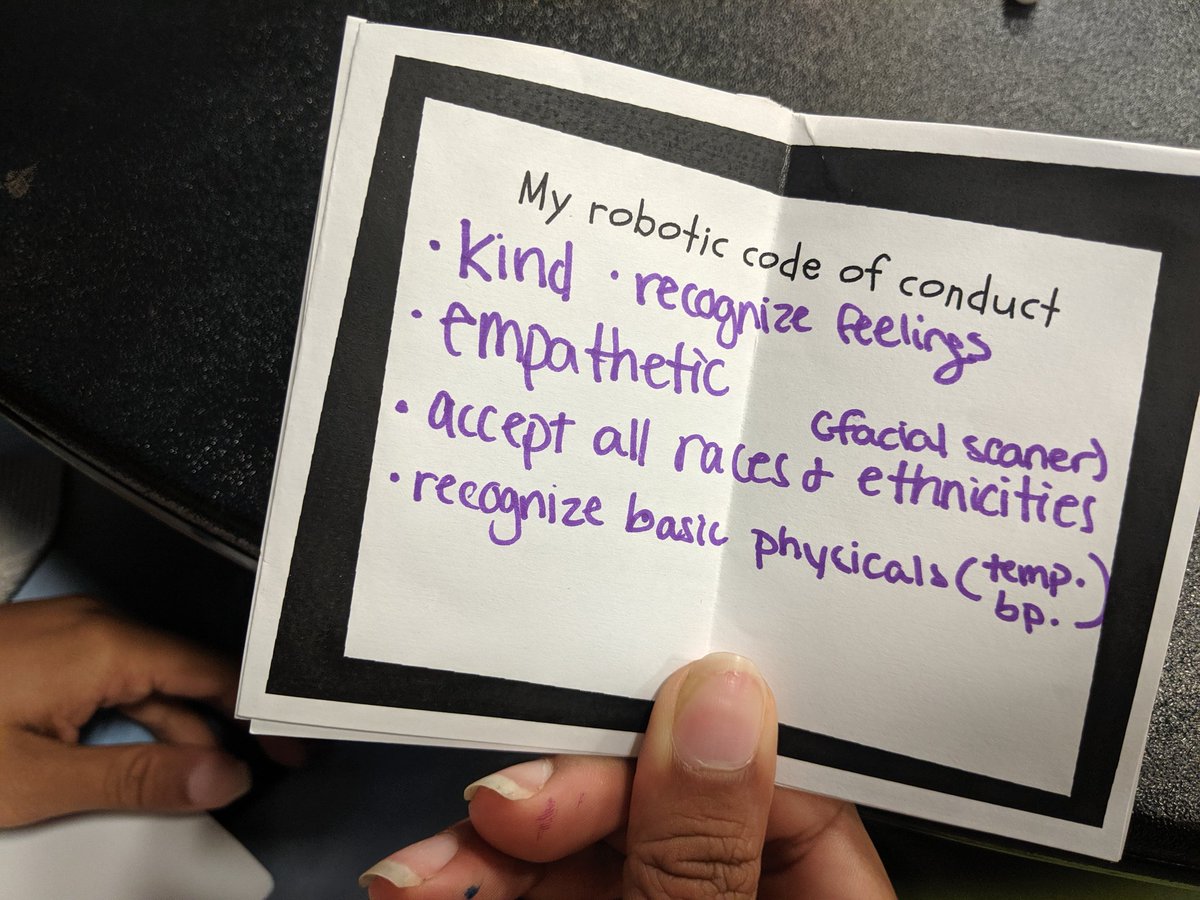 My robotic code of conduct
• kind • recognize feelings
• empathetic
(facial scaner)
• accept all races & ethnicities
• recognize basic physicals (temp.
bp.)